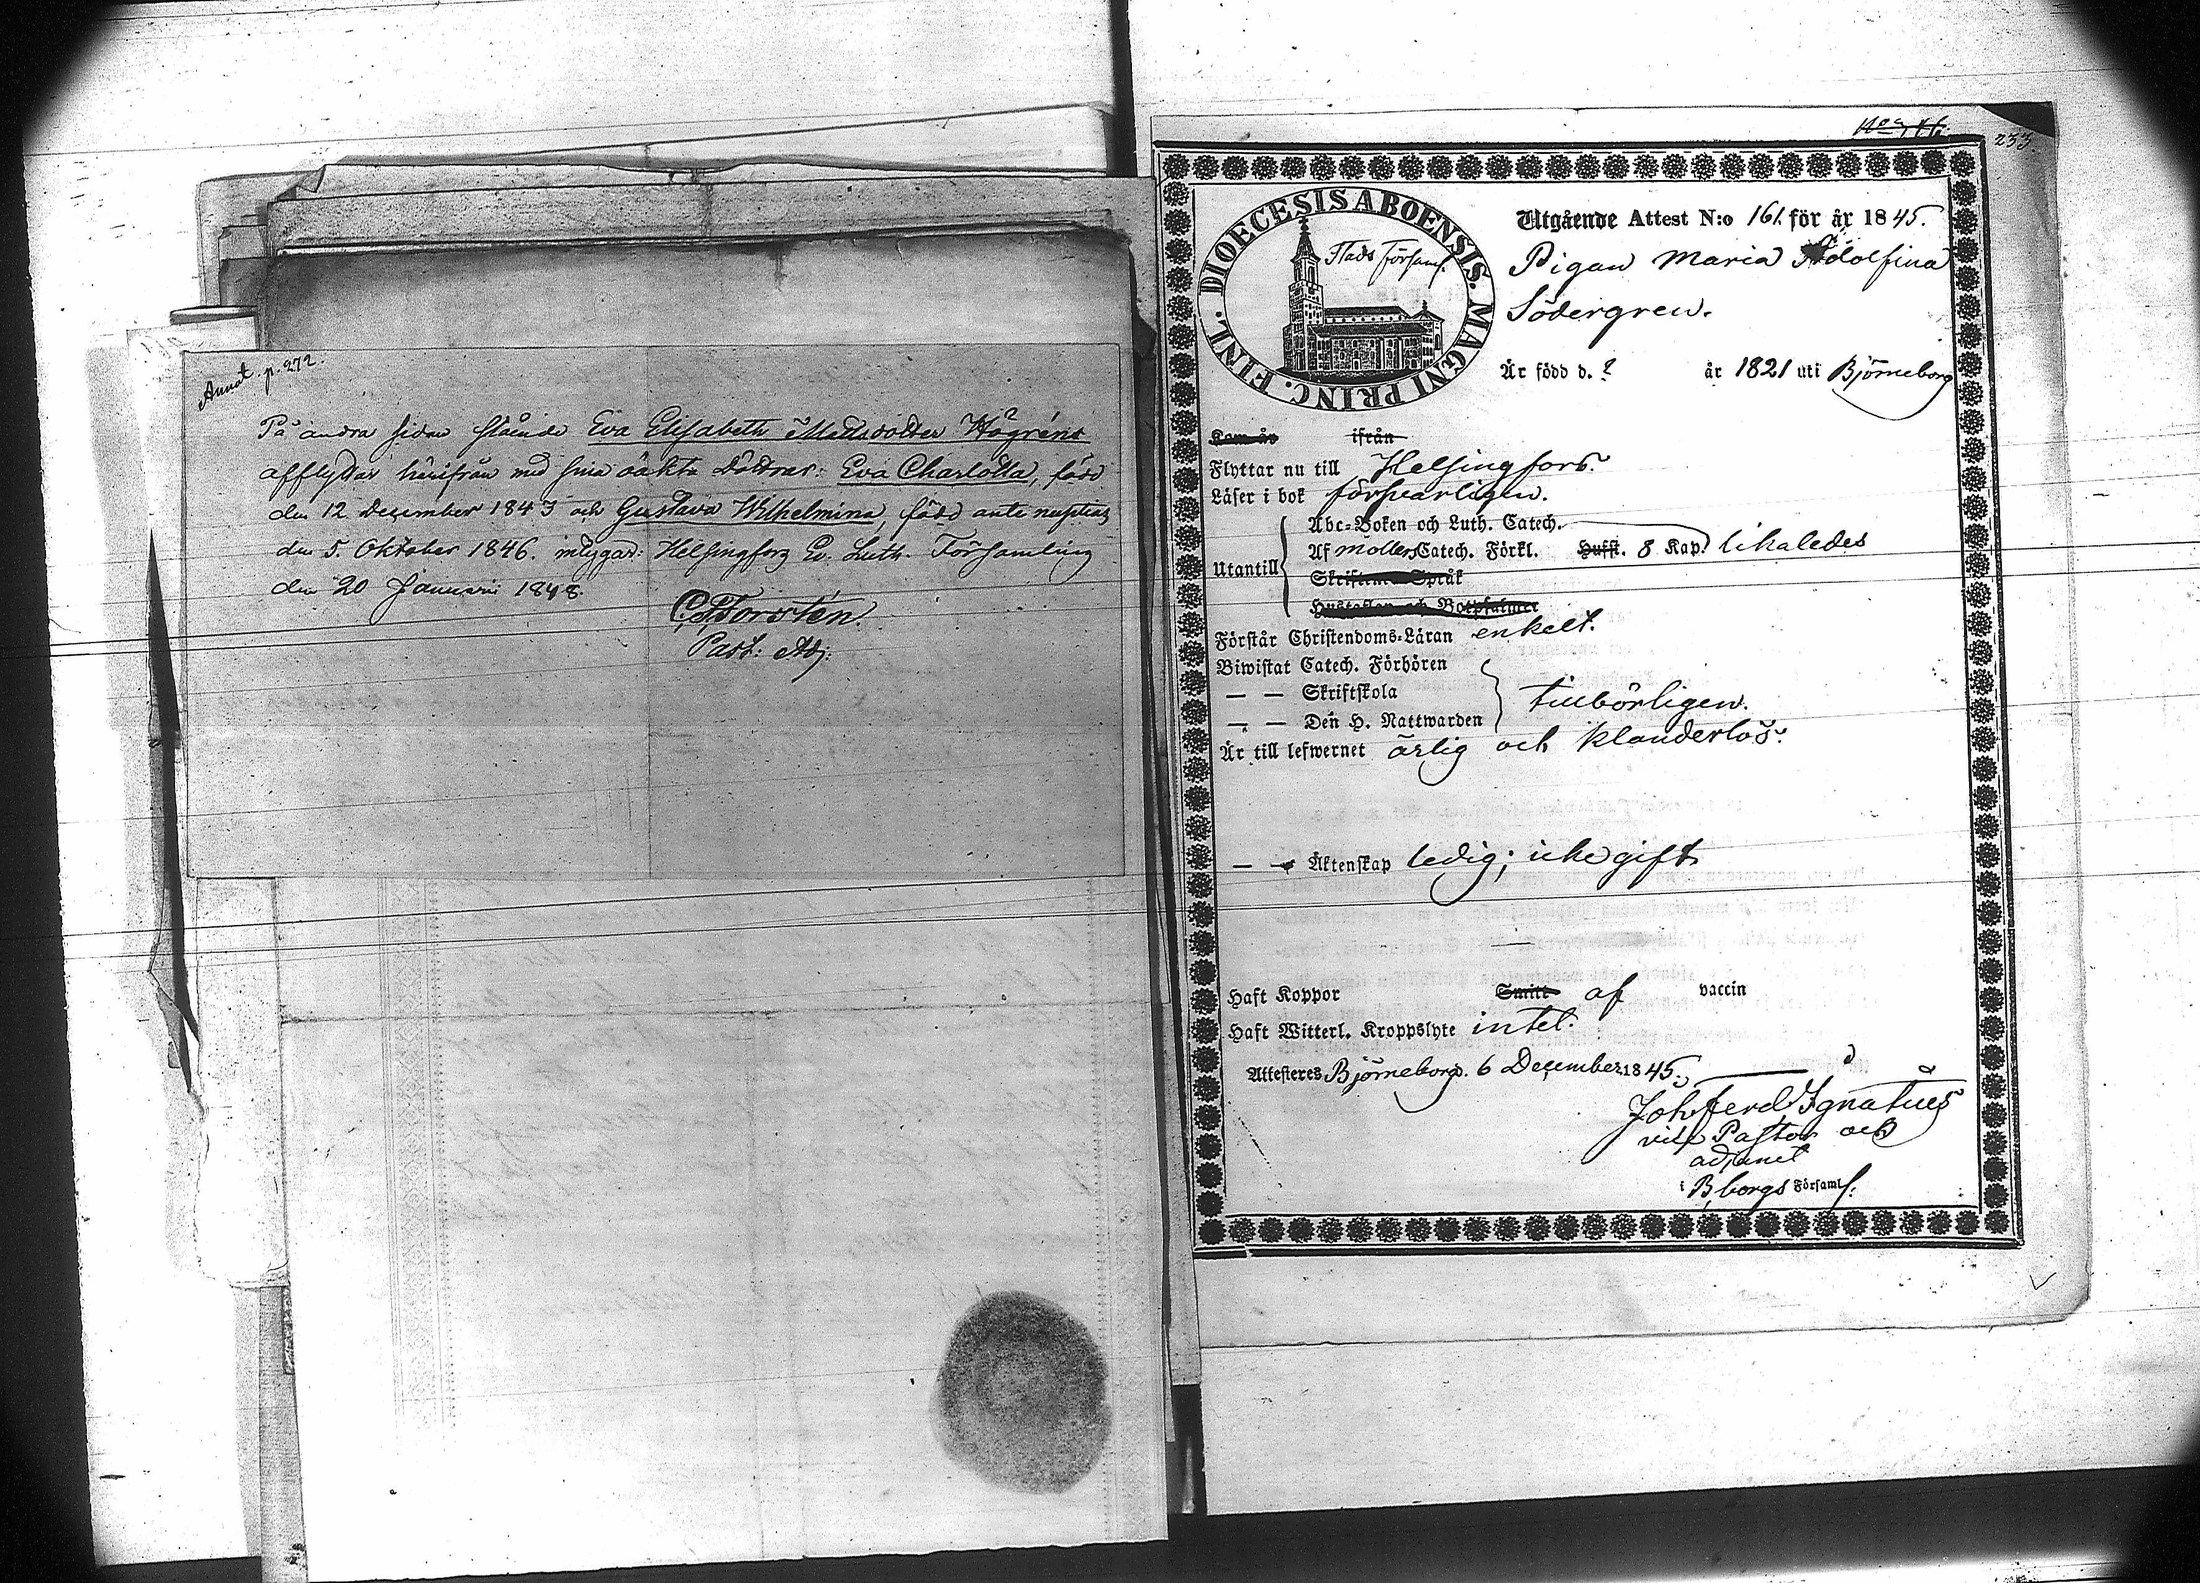 Annot. p. 272.
På andra sidan stående Eva Elisabeth Mattsdotter Högrén
afflyttar härifrån med sina oäkta döttrar: Eva Charlotta, född
den 12 December 1843 och Gustava Wilhelmina, född ante nuptias
den 5. Oktober 1846. intygar: Helsingfors Ev. Luth. Församling
den 20 Januari 1848.
Torstén.
Past: Adj:
233.
DIOECESIS ABOENSIS. MAGNI PRINC. FINL.
Stads Församl.
Utgående Attest N:o 161. för år 1845.
Pigan Maria Adolfina
Södergren.
Är född d. ? år 1821 uti Björneborg
Kom år ifrån
Flyttar nu till Helsingfors.
Läser i bok försvarligen.
Abc-Boken och Luth. Catech.
Utantill Af Möllers Catech. Förkl. Hufst. 8 Kap. likaledes
Skriftens Språk
Hustaflan och Botpsalmer
Förstår Christendoms-Läran enkelt.
Biwistat Catech. Förhören
— — Skriftskola tillbörligen.
— — Den H. Nattwarden
Är till lefwernet ärlig och klanderlös.
— — Äktenskap ledig; icke gift
Haft Koppor Smitt af vaccin
Haft Witterl. Kroppslyte intet.
Attesteres Björneborg. 6 December 1845.
Joh Ferd Ignatius
vice Pastor och
adjunct
i B,borgs Församl.